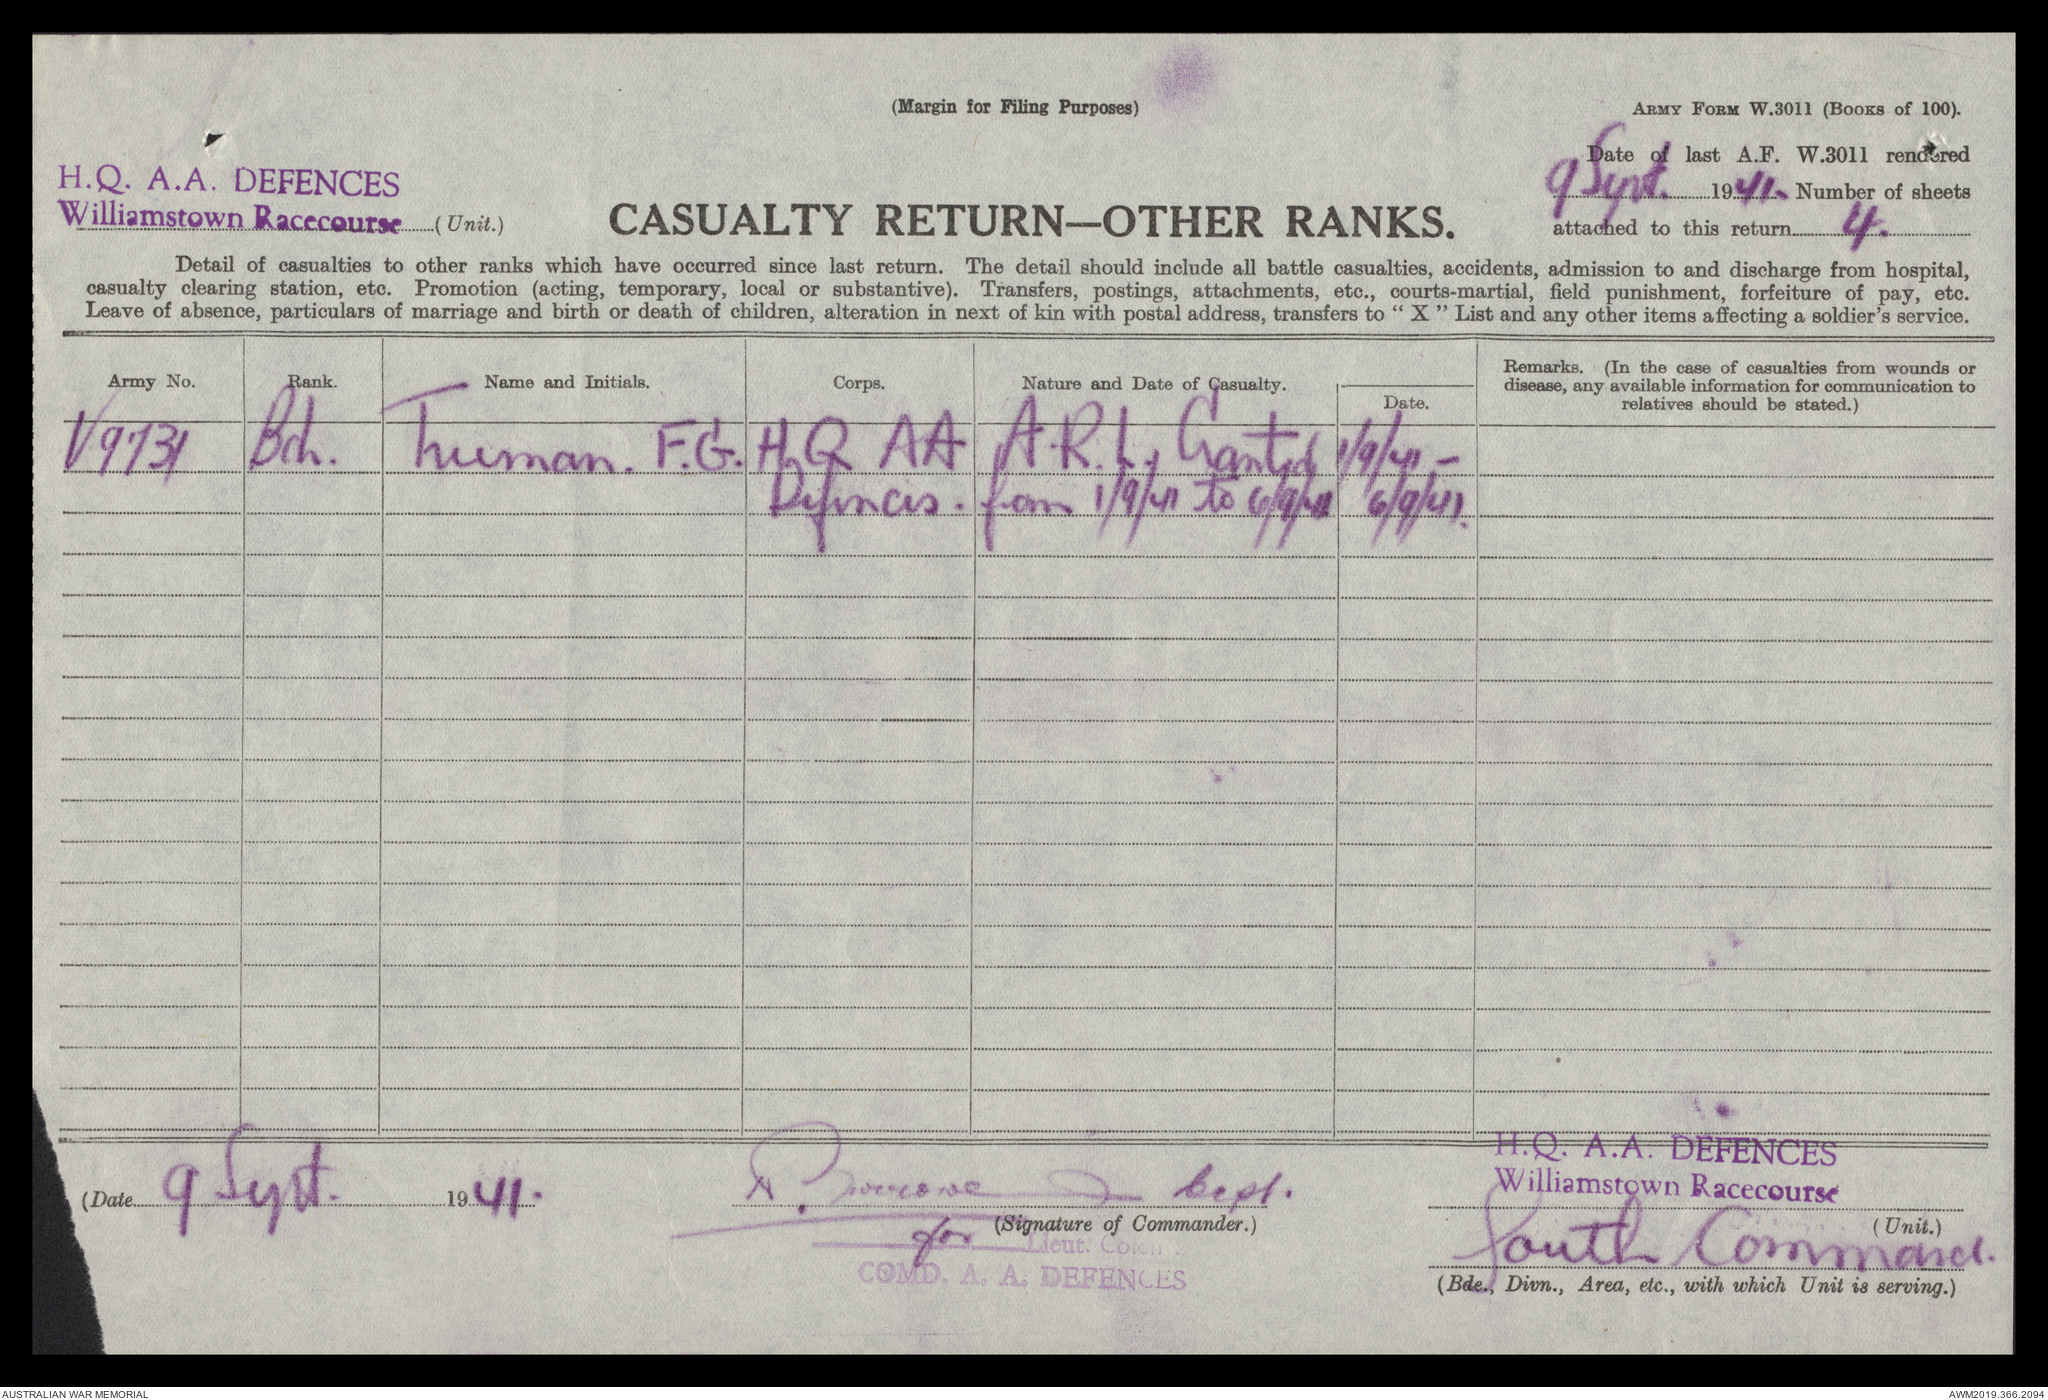 (Margin for Filing Purposes)
ARMY FORM W.3011 (BOOKS of 100).
Date of last A.F. W.3011 rendered
9 Sept. 1941. Number of sheets
attached to this return 4.
H.Q. A.A. DEFENCES
Williamstown Racecourse (Unit.)
CASUALTY RETURN—OTHER RANKS.
Detail of casualties to other ranks which have occurred since last return. The detail should include all battle casualties, accidents, admission to and discharge from hospital,
casualty clearing station, etc. Promotion (acting, temporary, local or substantive). Transfers, postings, attachments, etc., courts-martial, field punishment, forfeiture of pay, etc.
Leave of absence, particulars of marriage and birth or death of children, alteration in next of kin with postal address, transfers to " X " List and any other items affecting a soldier's service.
Army No. Rank. Name and Initials. Corps. Nature and Date of Casualty. Date. Remarks. (In the case of casualties from wounds or
disease, any available information for communication to
relatives should be stated.)
V9731 Bdr. Truman. F.G. H.Q AA A.R.L. Granted 1/9/41 -
Defences. from 1/9/41 to 6/9/41 6/9/41.
(Date 9 Sept. 1941.
Capt.
(Signature of Commander.)
for Lieut. Colon
COMD. A. A. DEFENCES
H.Q. A.A. DEFENCES
Williamstown Racecourse
(Unit.)
South Command.
(Bde., Divn., Area, etc., with which Unit is serving.)
AUSTRALIAN WAR MEMORIAL
AWM2019.366.2094